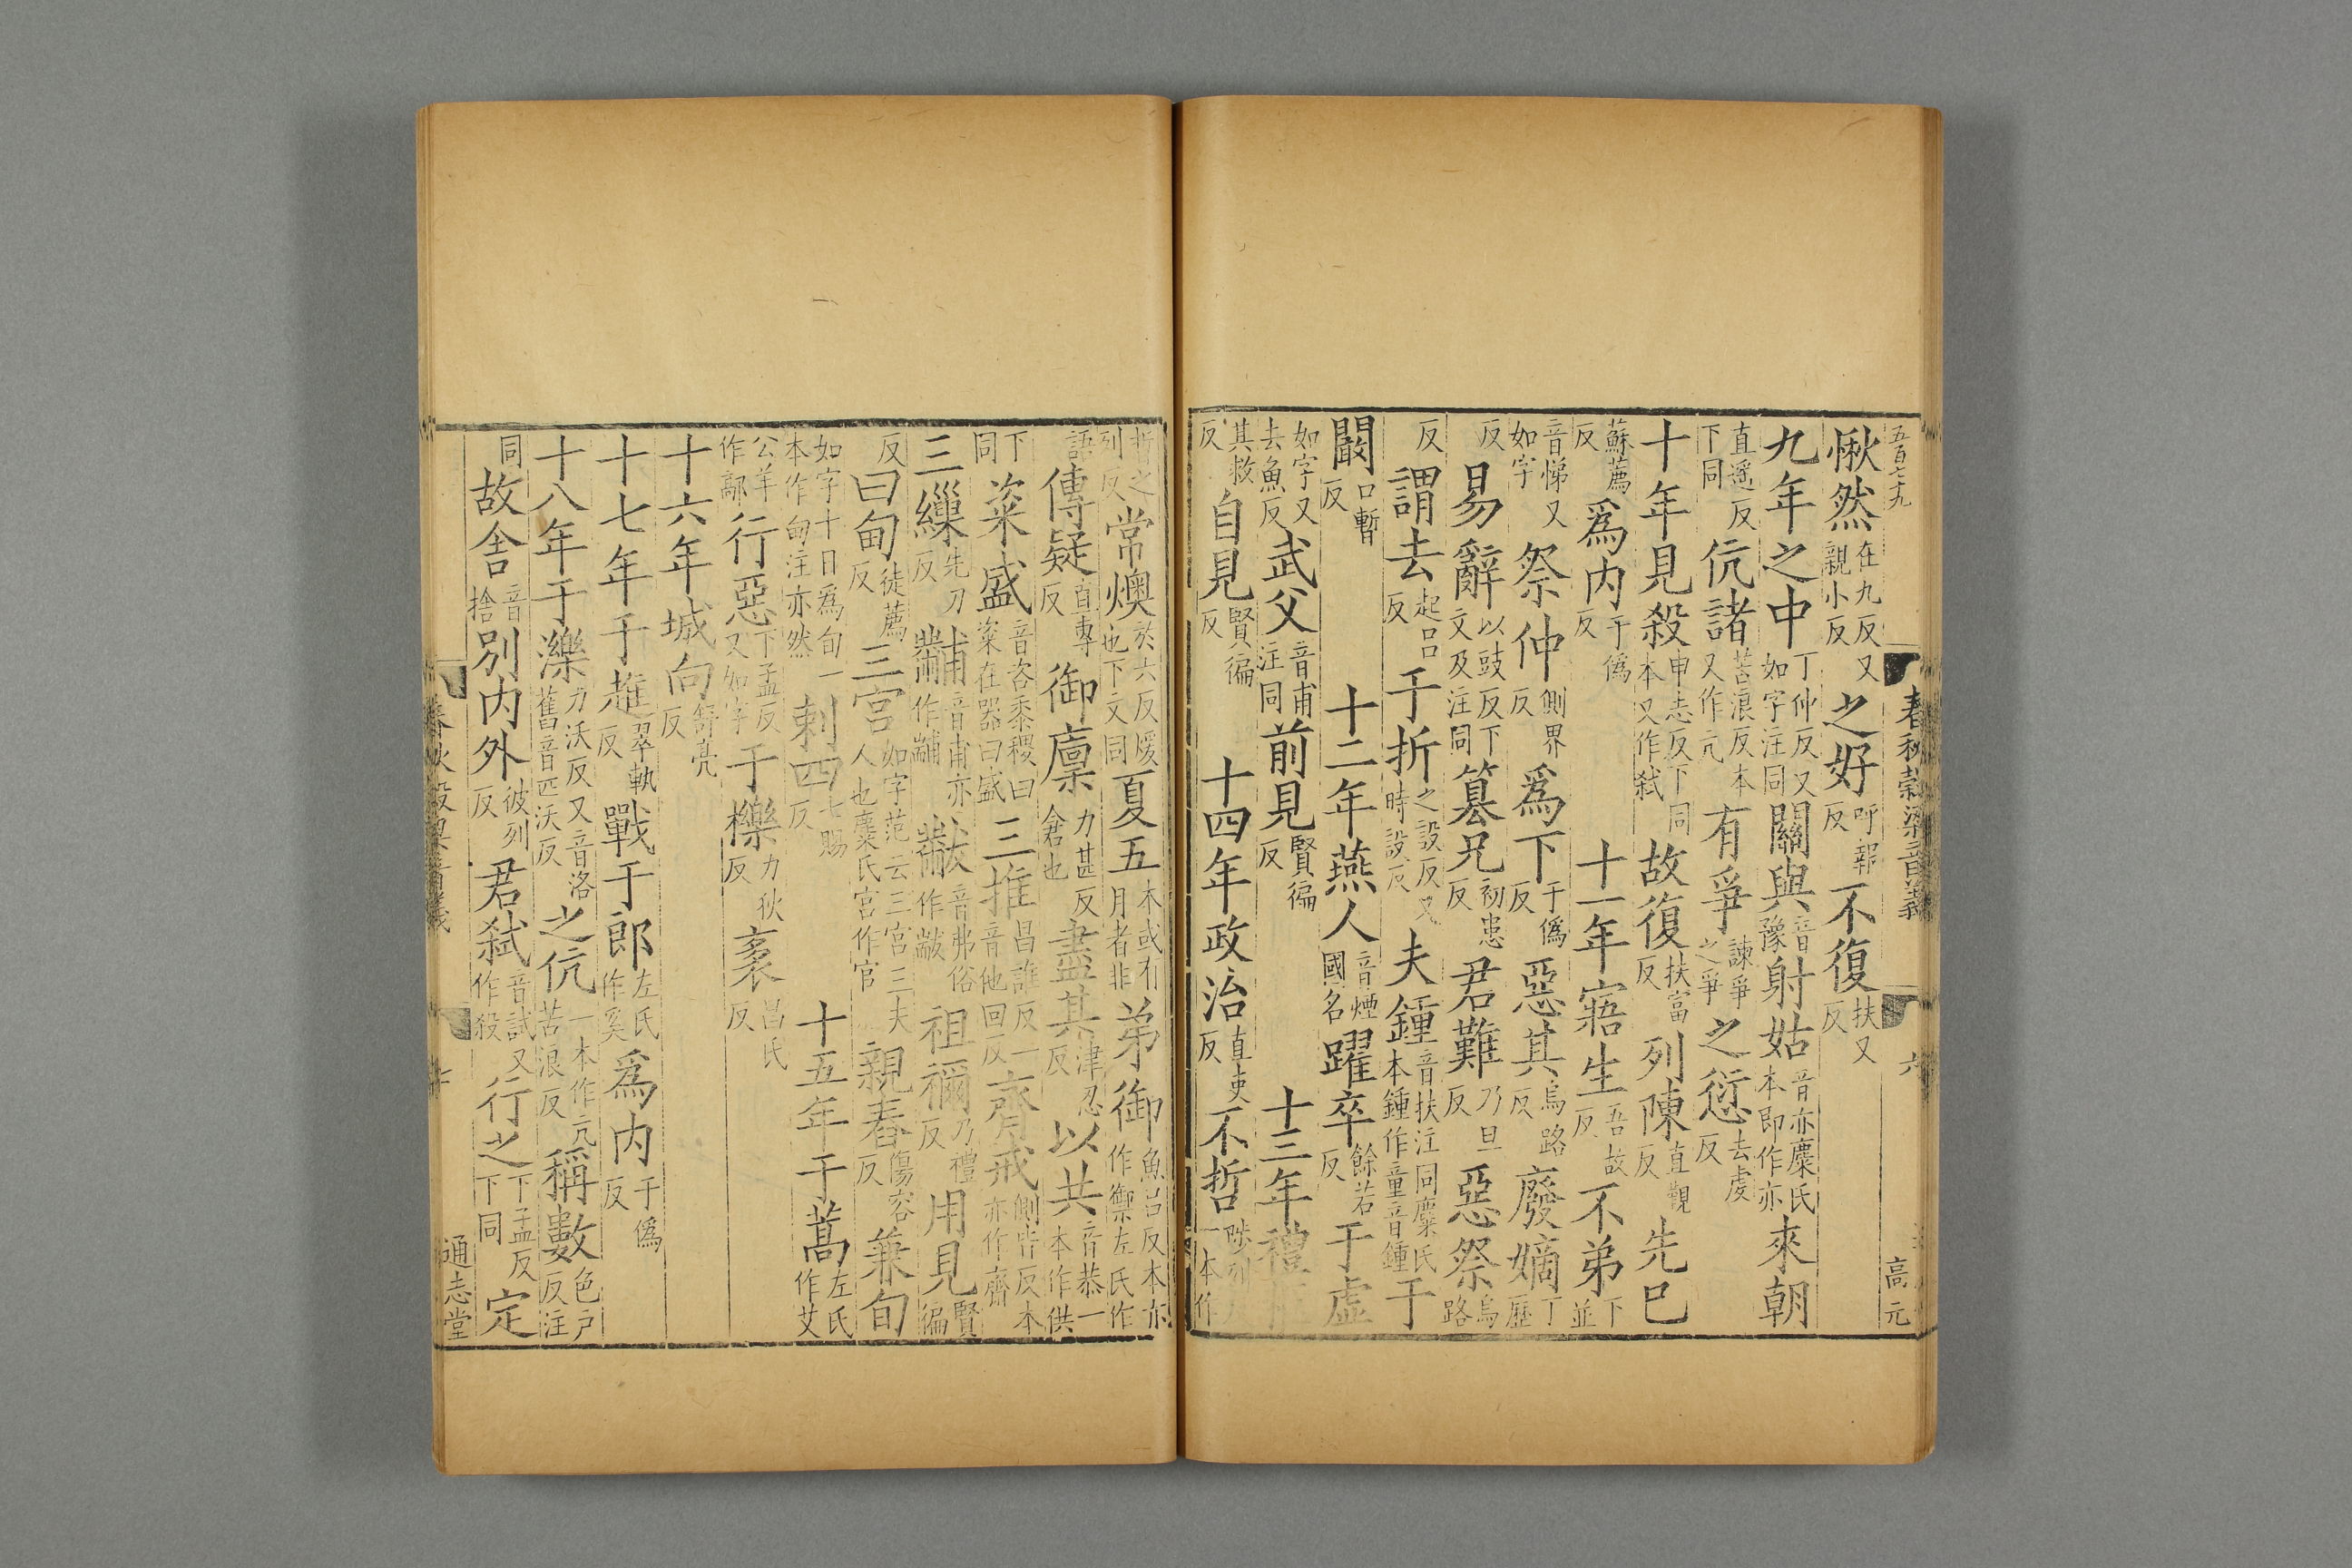 五百七十九
愀然在九反又親小反之好呼報反不復扶又反
九年之中丁仲反又如字注同關與音豫射姑音亦麋氏本即作亦來朝
直遥反下同伉諸苦浪反本又作亢有爭諫爭之爭之愆去虔反
十年見殺申志反下同本又作弒故復扶富反列陳直覲反先巳
蘇薦反爲内于僞反十一年寤生吾故反不弟下並
音悌又如字祭仲側界反爲下于僞反惡其烏路反廢嫡丁歷
反易辭以豉反下文及注同篡兄初患反君難乃旦反惡祭烏路
反謂去起吕反于折之設反又時設反夫鍾音扶注同麋氏本鍾作童音鍾于
闞口暫反十二年燕人音煙國名躍卒餘若反于虚
如字又去魚反武父音甫注同前見賢徧反十三年禮
其救反自見賢徧反十四年政治直吏反不哲陟列反一本作
春秋榖梁音義
六
高元
哲之列反常燠於六反煖也下文同夏五本或有月者非弟御魚吕反本亦作禦左氏作
語傳疑直專反御廩力甚反倉也盡其津忍反以共音恭一本作供
下同粢盛音咨黍稷曰粢在器曰盛三推昌誰反一音他回反齊戒側皆反本亦作齋
三繅先刀反黼音甫亦作黼黻音弗俗作黻祖禰乃禮反用見賢徧
反曰甸徒薦反三宫如字范云三宫三夫人也麋氏宫作官親舂傷容反兼旬
如字十日爲旬一本作甸注亦然刺四七賜反十五年于蒿左氏作艾
公羊作鄗行惡下孟反又如字于櫟力狄反袲昌氏反
十六年城向舒亮反
十七年于趡翠軌反戰于郎左氏作奚爲内于僞反
十八年于濼力沃反又音洛舊音匹沃反之伉苦浪反一本作亢稱數色户反注
同故舍音捨別内外彼列反君弒音試又作殺行之下孟反下同定
春秋榖梁音義
通志堂